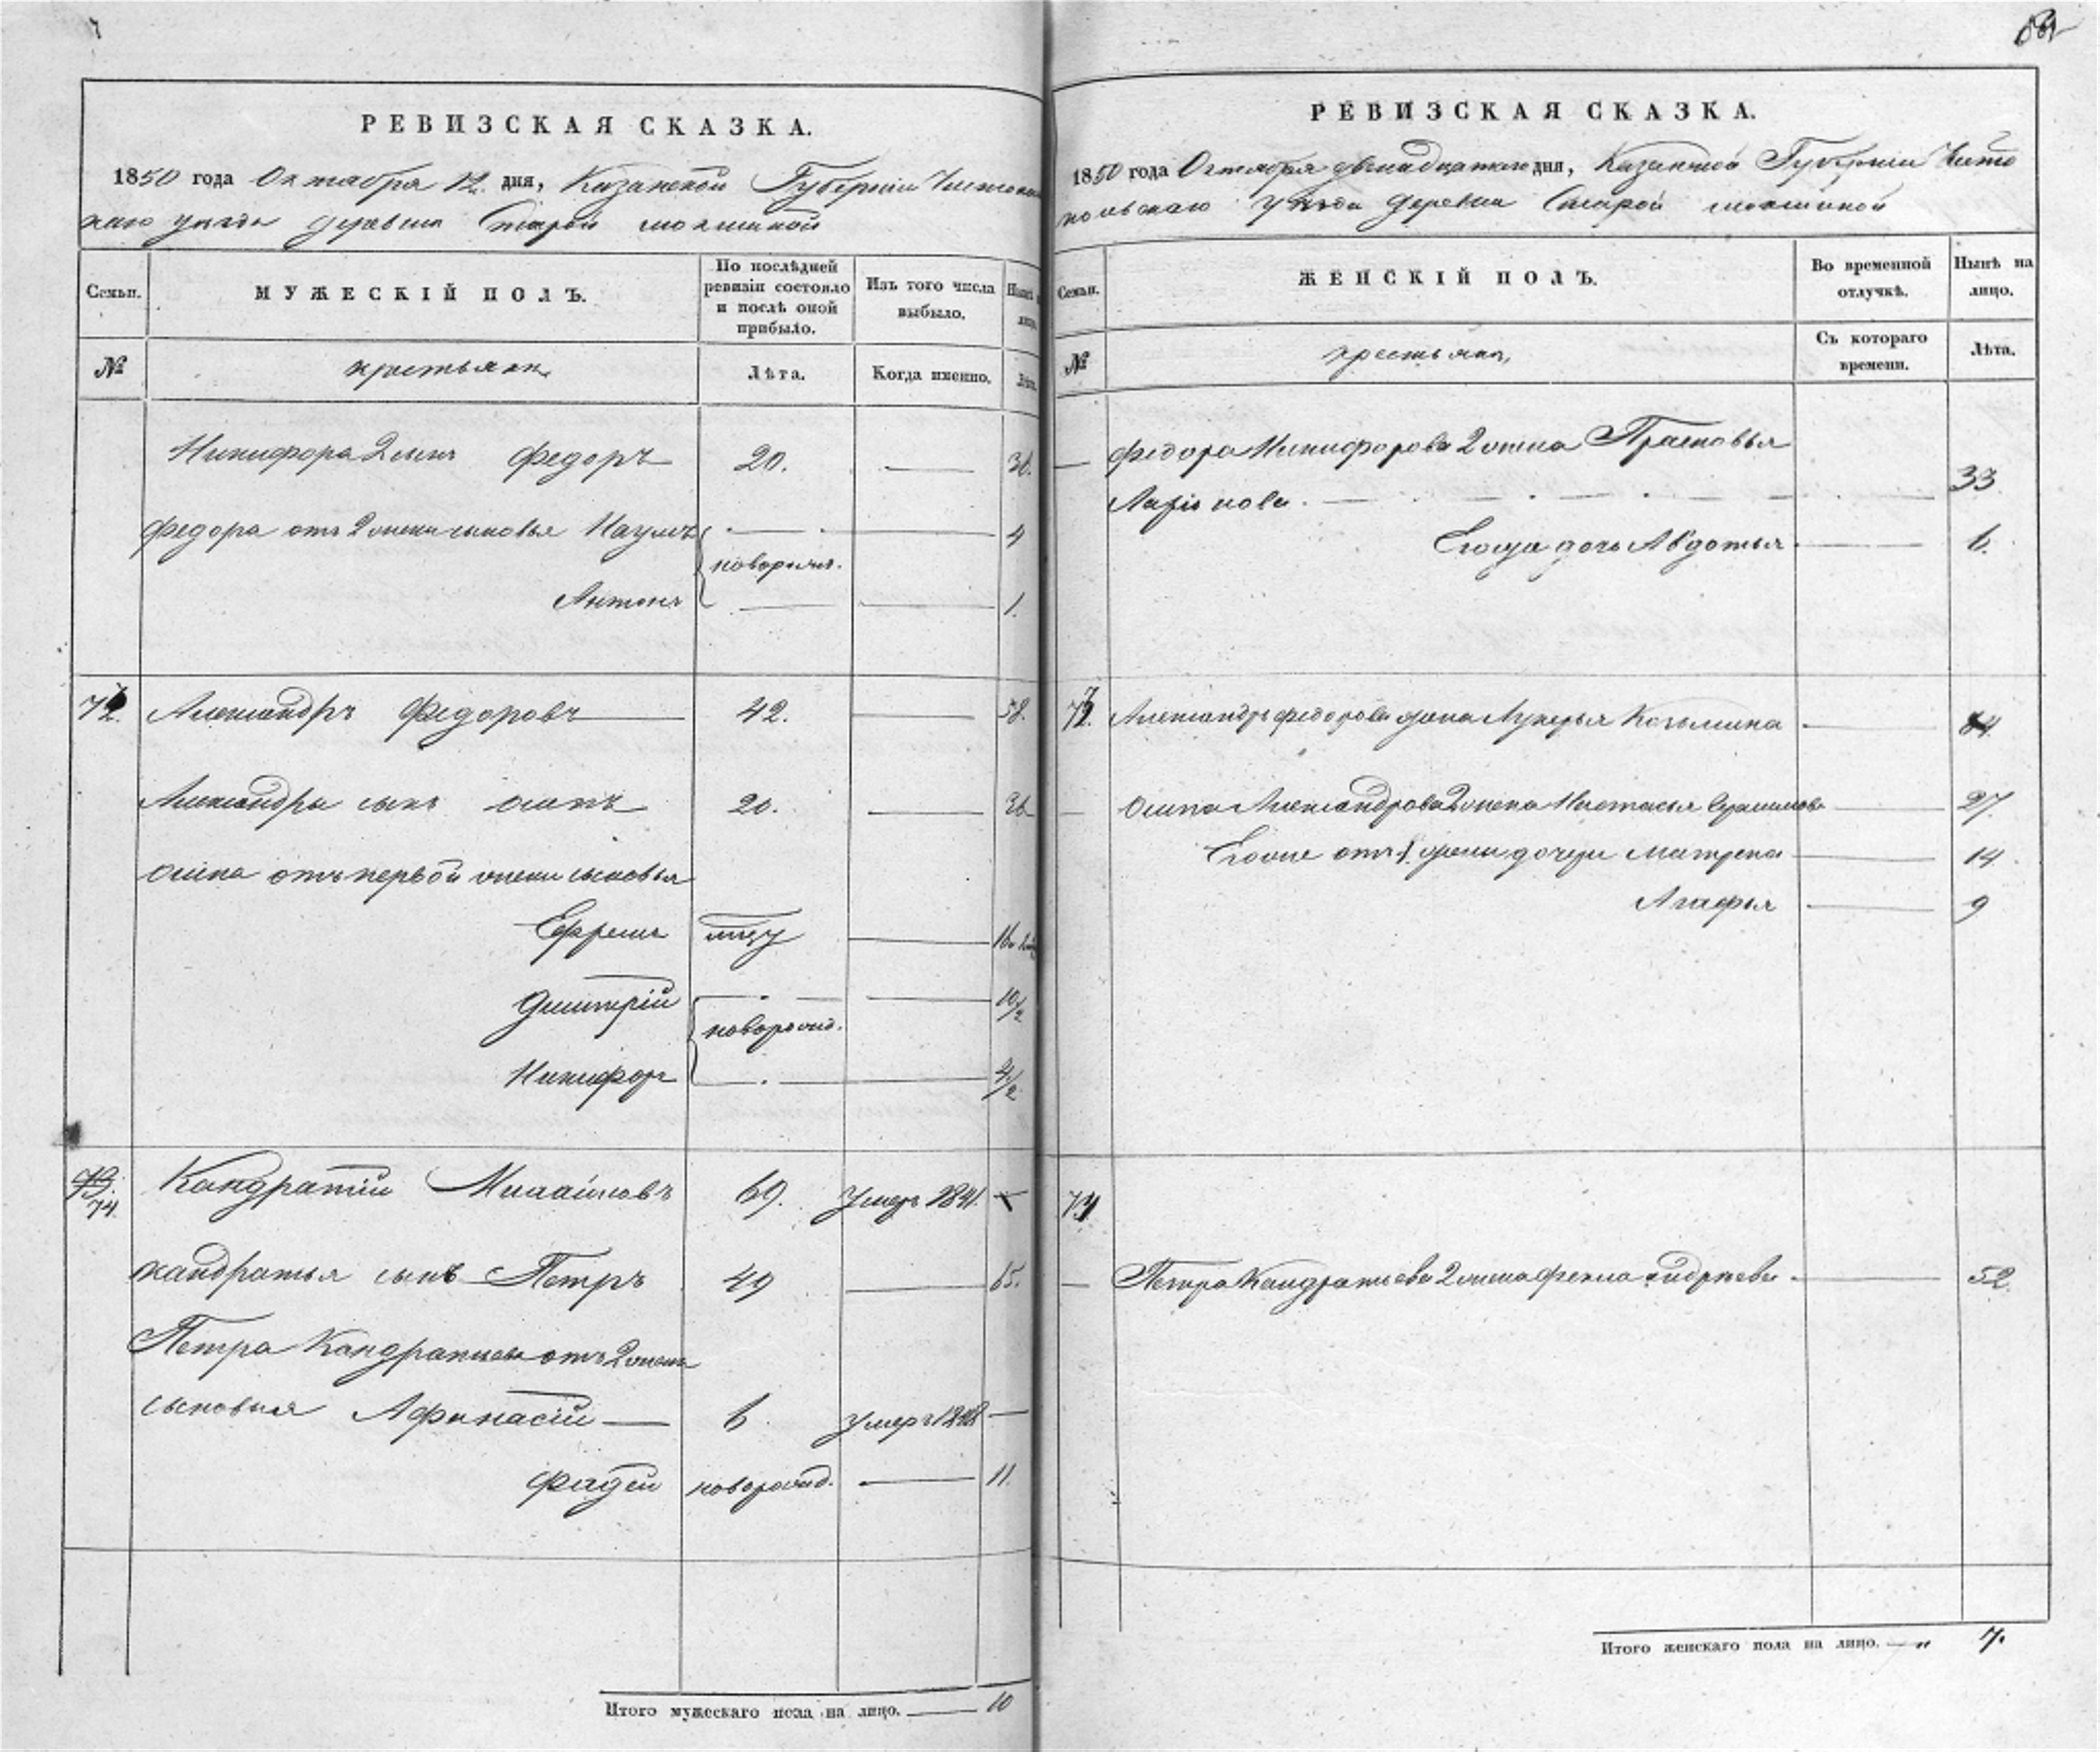 РЕВИЗСКАЯ СКАЗКА.
1850 года Октября 12. дня, Казанской Губерніи
уезда деревни Старой
Семьи.
МУЖЕСКІЙ ПОЛЪ.
По послѣдней ревизіи состояло и послѣ оной прибыло.
Изъ того числа выбыло.
№
крестьяне
Лѣта.
Когда именно.
Лѣта.
Никифора 2 сынъ Федоръ 20. — 36.
Федора отъ 2 жены сыновья Наумъ — — 4
новорожд.
Антонъ — — 1.
72. Александръ Федоровъ — 42. — 58.
Александра сынъ Осипъ 20. — 36
Осипа отъ первой жены сыновья
Ефремъ — 16
Дмитрій — — 10/2
новорожд.
Никифоръ — — 4/2
73. 74. Кандратій Михайловъ 69. Умеръ 1841.
Кандратья сынъ Петръ 49 — 65.
Петра Кандратьева отъ 2 жены
сыновья Афанасій — 6 умеръ —
Фадей новорожд. — 11.
Итого мужескаго пола на лицо. — 10
РЕВИЗСКАЯ СКАЗКА.
1850 года Октября двенадцатаго дня, Казанской Губерніи Чисто
польскаго уезда деревни Старой
Семьи.
ЖЕНСКІЙ ПОЛЪ.
Во временной отлучкѣ.
Нынѣ на лицо.
№
крестьяне,
Съ котораго времени.
Лѣта.
— Федора Никифорова 2 жена Прасковья
Ларіонова. — 33
Егоже дочь Авдотья — 6.
73. Александра Федорова жена Лукерья Козьмина —
— Осипа Александрова 2 жена Настасья — 27.
Егоже отъ 1 жены дочери Матрена — 14.
Агафья — 9
74
— Петра Кандратьева 2 жена Фекла Андреева — 52.
Итого женскаго пола на лицо. — 7.